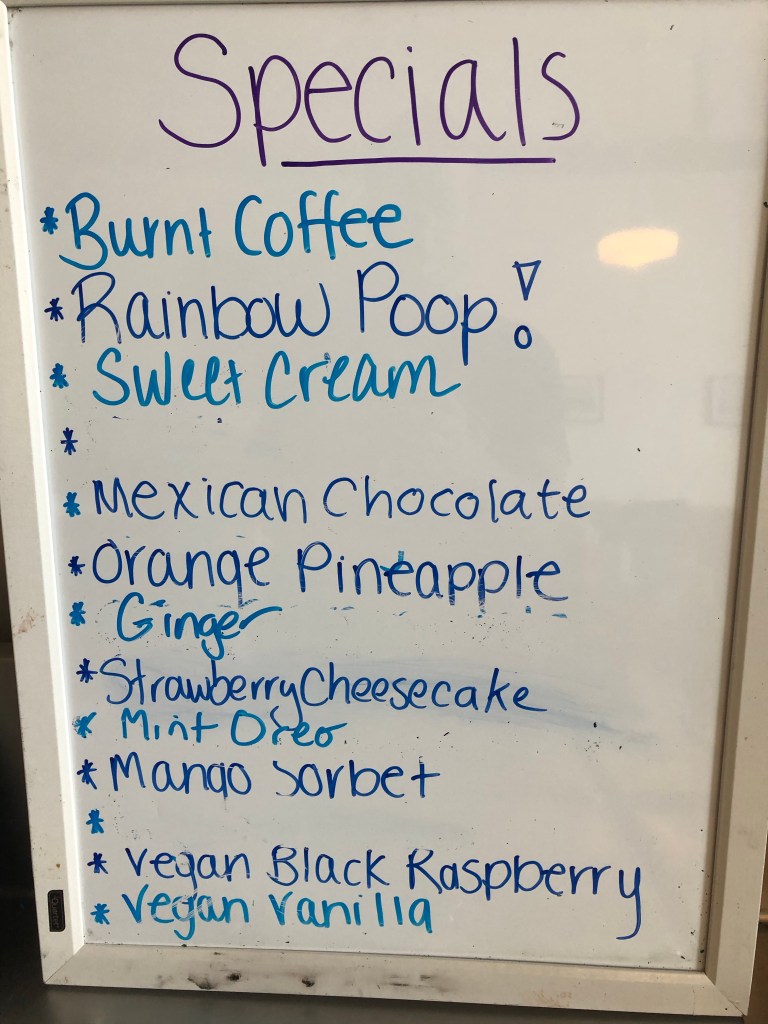 Specials
* Burnt Coffee
* Rainbow Poop!
* Sweet Cream
*
* Mexican Chocolate
* Orange Pineapple
* Ginger
* Strawberry Cheesecake
* Mint Oreo
* Mango Sorbet
*
* Vegan Black Raspberry
* Vegan Vanilla